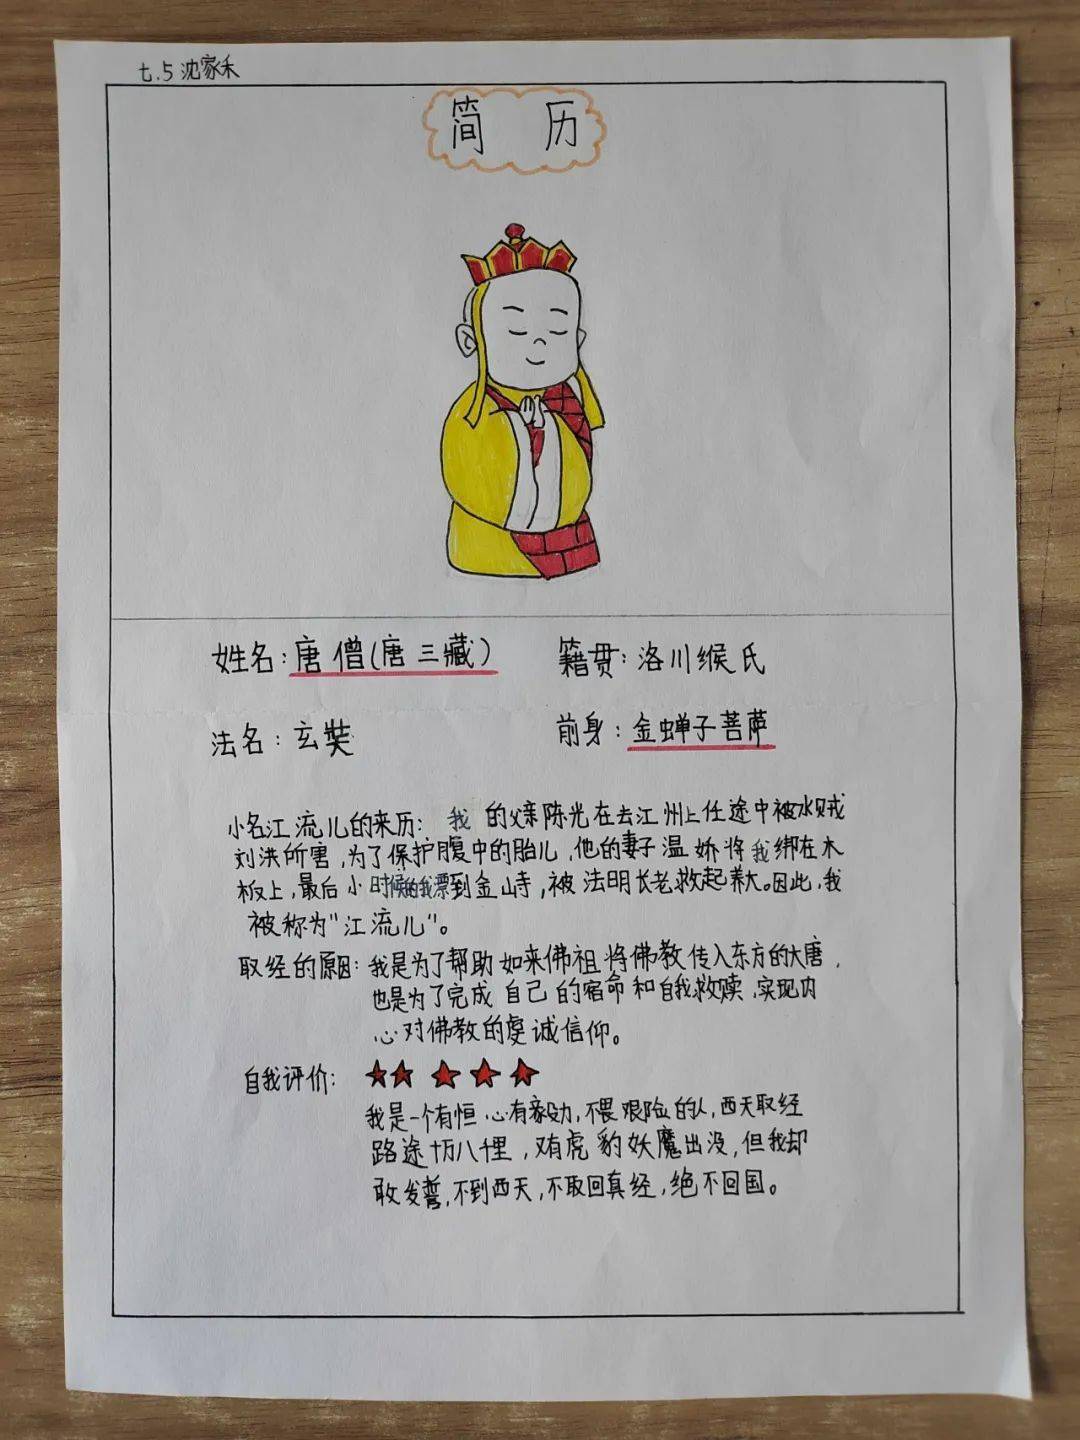 七.5 沈家禾
简 历
姓名：唐僧(唐三藏) 籍贯：洛川缑氏
法名：玄奘 前身：金蝉子菩萨
小名江流儿的来历：我的父亲陈光在去江州上任途中被水贼
刘洪所害，为了保护腹中的胎儿，他的妻子温娇将我绑在木
板上，最后小时候的我漂到金山寺，被法明长老救起养大。因此，我
被称为“江流儿”。
取经的原因：我是为了帮助如来佛祖将佛教传入东方的大唐，
也是为了完成自己的宿命和自我救赎，实现内
心对佛教的虔诚信仰。
自我评价：★★★★★
我是一个有恒心有毅力，不畏艰险的人，西天取经
路途十万八千里，又有虎豹妖魔出没，但我却
敢发誓，不到西天，不取回真经，绝不回国。